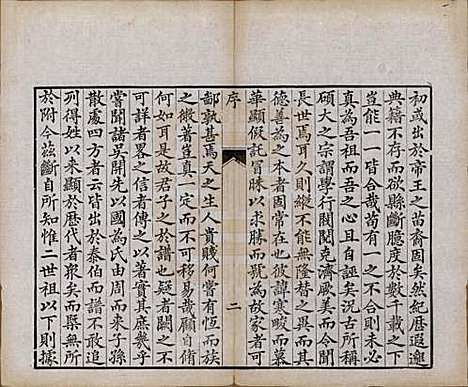 初或出於帝王之苗裔固矣然紀歷遐邈
典籍不存而欲縣斷臆度於數千載之下
豈能一一皆合哉苟有一人焉本非吾之
真為吾祖而吾之心且自誣矣況古所稱
碩大之宗謂學行閥閱克濟厥美而其子
長世焉耳久則縱不能無隆替之異而其
德善為之本者固常在也彼諱寒畯而慕
華顯假託冒昧以求勝而號為故家者可
序
二
鄙孰甚焉夫之生人貴賤何嘗有恆而族
之微著豈真一定而不可移易哉顧自脩
何如耳是故君子之於譜也疑者闕之而
可詳者畧之信者傳之以著實其庶幾乎
嘗聞諸吳開先以國為氏由周而來子孫
散處四方者云皆出於泰伯而譜不敢追
列得姓以來顯於歷代者眾矣而槩無所
於附今茲斷自所知惟二世祖以下則據